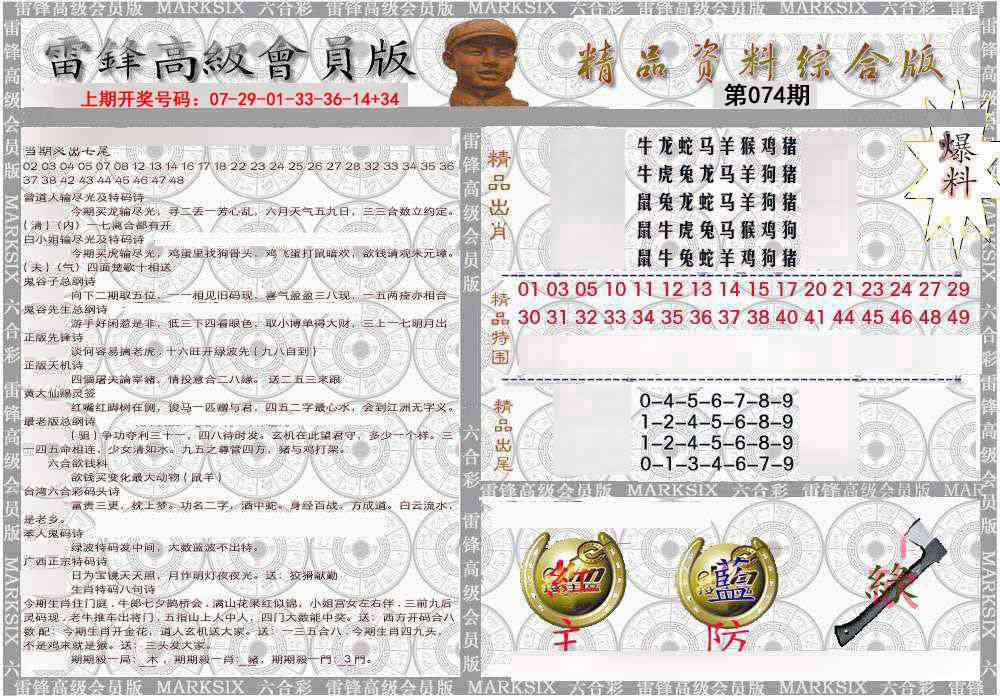 雷锋高级会员版 MARKSIX 六合彩 雷锋高级会员版 MARKSIX 六合彩 雷锋高级会员版 MARKSIX
雷鋒高級會員版
精品资料综合版
上期开奖号码：07-29-01-33-36-14+34
第074期
爆料
当期灵出七尾
02 03 04 05 07 08 12 13 14 16 17 18 22 23 24 25 26 27 28 32 33 34 35 36
37 38 42 43 44 45 46 47 48
曾道人输尽光及特码诗
今期买龙输尽光，寻二丢一芳心乱，六月天气五九日，三三合数立约定。
(清)(内) 一七离合都有开
白小姐输尽光及特码诗
今期买虎输尽光，鸡蛋里找狗骨头，鸡飞蛋打鼠暗欢，欲钱请观朱元璋。
(夫)(气) 四面楚歌十相送
鬼谷子总纲诗
问下二期取五位，一一相见旧码现，喜气盈盈三八现，一五两疫亦相合
鬼谷先生总纲诗
游手好闲惹是非，低三下四看眼色，取小博单得大财，三上一七明月出
正版先锋诗
谈何容易擒老虎，十六旺开绿波先(九八自到)
正版天机诗
四個屠夫論宰豬，情投意合二八緣。 送二五三来跟
黄大仙赐灵签
红嘴红脚树在侧，骏马一匹赠与君，四五二字最心水，会到江洲无字义。
最老版总纲诗
(诅)争功夺利三十一，四八待时发。玄机在此望君守，多少一个样。三
一四五命相连，少女清如水。九五之尊管四方，猪与鸡打架。
六合欲钱料
欲钱买变化最大动物(鼠羊)
台湾六合彩码头诗
富贵三更，枕上梦。功名二字，酒中蛇。身经百战，方成道。白云流水，
是老乡。
本人鬼码诗
绿波特码发中间，大数蓝波不出特。
广西正宗特码诗
日为宝镜天天照，月作明灯夜夜光。送：狡猾献勤
生肖特码八句诗
今期生肖住门庭，牛郎七夕鹊桥会，满山花果红似锦，小姐宫女左右伴，三前九后
灵码现，老牛推车出将门，五指山上人中人，四门大数能中奖。送：西方开码合八
数 配：今期生肖开金花，道人玄机送大家。送：一三五合八，今期生肖四九头，
不是鸡来就是猴。送：三头发大家。
期期殺一局：木，期期殺一肖：豬，期期殺一門：3門。
精品出肖
牛龙蛇马羊猴鸡猪
牛虎兔龙马羊狗猪
鼠兔龙蛇马羊狗猪
鼠牛虎兔马猴鸡狗
鼠牛兔蛇羊鸡狗猪
精品特围
01 03 05 10 11 12 13 14 15 17 20 21 23 24 27 29
30 31 32 33 34 35 36 37 38 40 41 44 45 46 48 49
精品出尾
0-4-5-6-7-8-9
1-2-4-5-6-8-9
1-2-4-5-6-8-9
0-1-3-4-6-7-9
雷锋高级会员版 MARKSIX 六合彩 雷锋高级会员版 MAR
紅
主
藍
防
綠
雷锋高级会员版 MARKSIX 六合彩 雷锋高级会员版 MARKSIX 六合彩 雷锋高级会员版 MARKSIX